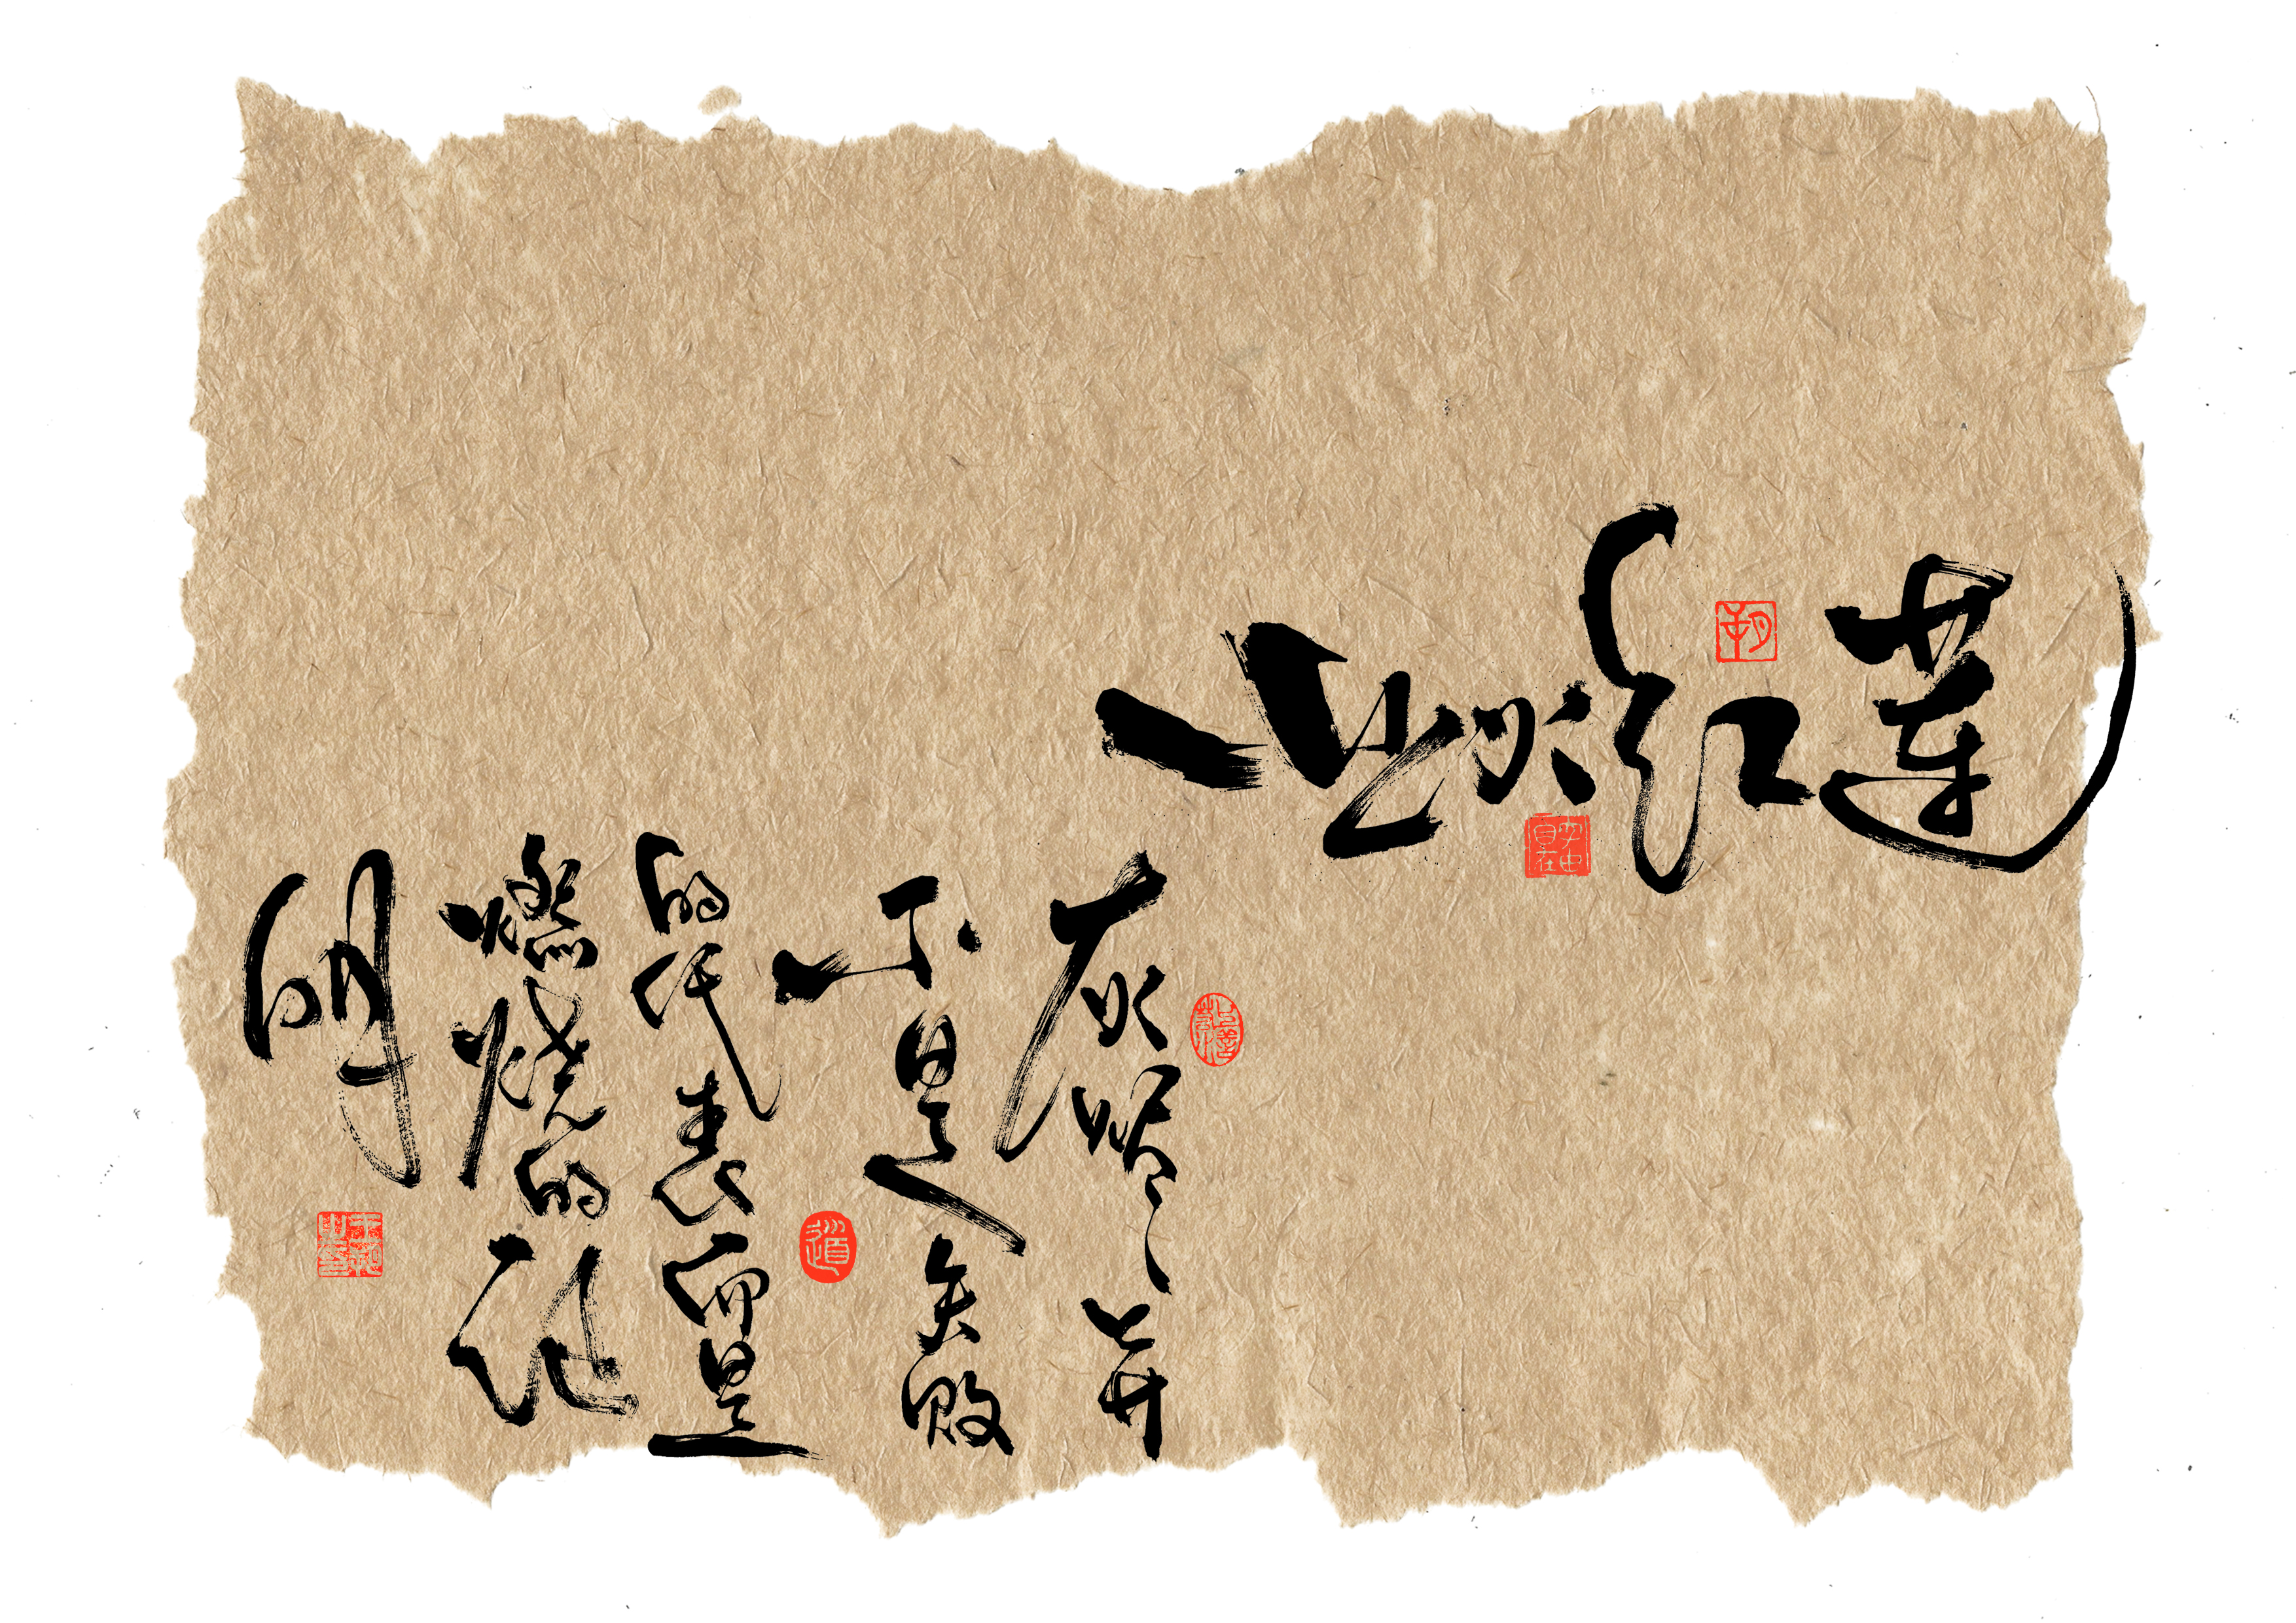 业火红莲
灰烬并
不是失败
的代表而是
燃烧的证
明
道